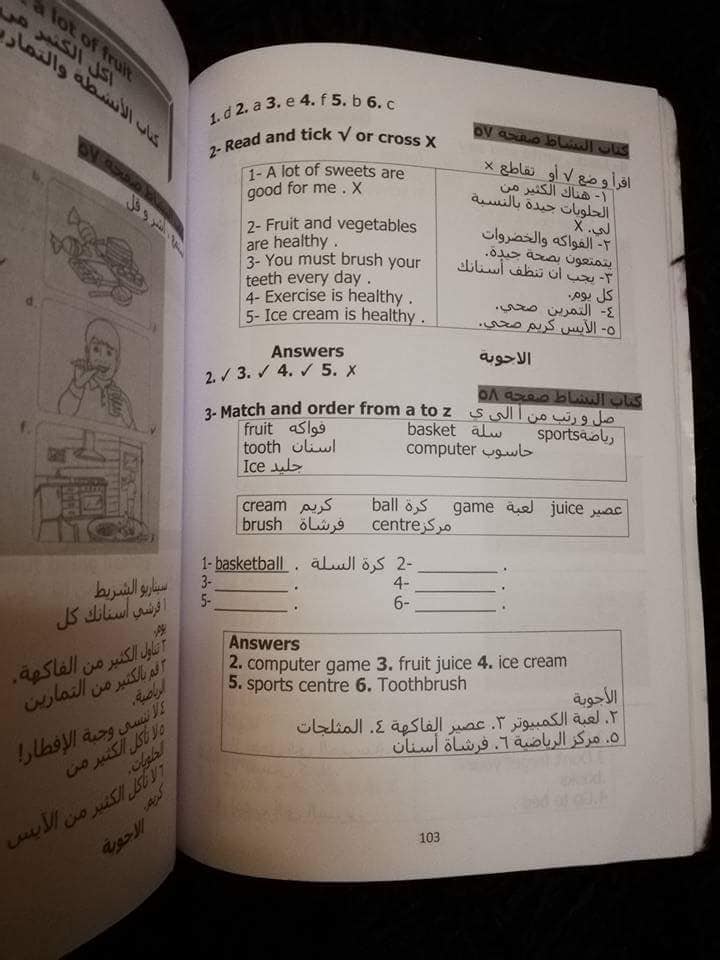 a lot of fruit
أكل الكثير من
كتاب الأنشطة والتمارين
صفحة ٥٧
أشر و قل
b.
d.
f.
سيناريو الشريط
١ فرشي أسنانك كل
يوم.
٢ تناول الكثير من الفاكهة.
٣ قم بالكثير من التمارين
الرياضية.
٤ لا تنسى وجبة الإفطار!
٥ لا تأكل الكثير من
الحلويات.
٦ لا تأكل الكثير من الآيس
كريم.
الاجوبة
1. d 2. a 3. e 4. f 5. b 6. c
كتاب النشاط صفحة ٥٧
2- Read and tick √ or cross X
اقرأ و ضع √ أو تقاطع X
1- A lot of sweets are
good for me . X
2- Fruit and vegetables
are healthy .
3- You must brush your
teeth every day .
4- Exercise is healthy .
5- Ice cream is healthy .
١- هناك الكثير من
الحلويات جيدة بالنسبة
لي. X
٢- الفواكه والخضروات
يتمتعون بصحة جيدة.
٣- يجب ان تنظف أسنانك
كل يوم.
٤- التمرين صحي.
٥- الآيس كريم صحي.
Answers الاجوبة
2. ✓ 3. ✓ 4. ✓ 5. ✗
كتاب النشاط صفحة ٥٨
3- Match and order from a to z صل و رتب من أ الى ي
fruit فواكه basket سلة sports رياضة
tooth اسنان computer حاسوب
Ice جليد
cream كريم ball كرة game لعبة juice عصير
brush فرشاة centre مركز
1- basketball . كرة السلة 2- ________ .
3- ________ . 4- ________ .
5- ________ . 6- ________ .
Answers
2. computer game 3. fruit juice 4. ice cream
5. sports centre 6. Toothbrush
الأجوبة
٢. لعبة الكمبيوتر ٣. عصير الفاكهة ٤. المثلجات
٥. مركز الرياضية ٦. فرشاة أسنان
103